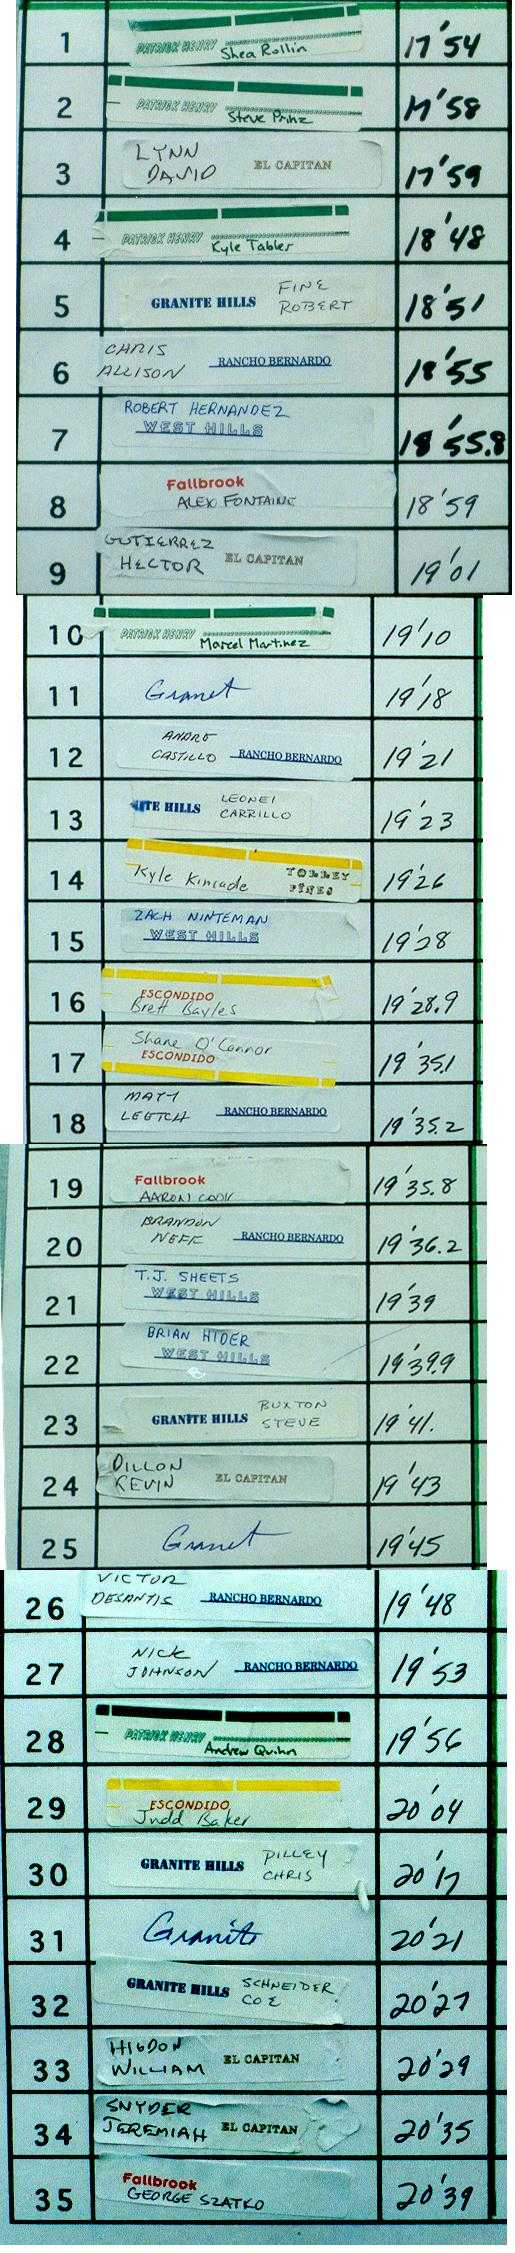 1 PATRICK HENRY Shea Rollin 17'54
2 PATRICK HENRY Steve Prinz 17'58
3 LYNN DAVID EL CAPITAN 17'59
4 PATRICK HENRY Kyle Tabler 18'48
5 GRANITE HILLS FINE ROBERT 18'51
6 CHRIS ALLISON RANCHO BERNARDO 18'55
7 ROBERT HERNANDEZ WEST HILLS 18'55.8
8 Fallbrook ALEX FONTAINE 18'59
9 GUTIERREZ HECTOR EL CAPITAN 19'01
10 PATRICK HENRY Marcel Martinez 19'10
11 Granet 19'18
12 ANDRE CASTILLO RANCHO BERNARDO 19'21
13 ITE HILLS LEONEL CARRILLO 19'23
14 Kyle Kincade TORREY PINES 19'26
15 ZACH NINTEMAN WEST HILLS 19'28
16 ESCONDIDO Brett Bayles 19'28.9
17 Shane O'Connor ESCONDIDO 19'35.1
18 MATT LEETCH RANCHO BERNARDO 19'35.2
19 Fallbrook AARON COOK 19'35.8
20 BRANDON NEFF RANCHO BERNARDO 19'36.2
21 T.J. SHEETS WEST HILLS 19'39
22 BRIAN HIDER WEST HILLS 19'39.9
23 GRANITE HILLS BUXTON STEVE 19'41.
24 DILLON KEVIN EL CAPITAN 19'43
25 Granet 19'45
26 VICTOR DESANTIS RANCHO BERNARDO 19'48
27 NICK JOHNSON RANCHO BERNARDO 19'53
28 PATRICK HENRY Andrew Quihn 19'56
29 ESCONDIDO Judd Baker 20'04
30 GRANITE HILLS PILLEY CHRIS 20'17
31 Granite 20'21
32 GRANITE HILLS SCHNEIDER COE 20'27
33 HIGDON WILLIAM EL CAPITAN 20'29
34 SNYDER JEREMIAH EL CAPITAN 20'35
35 Fallbrook GEORGE SZATKO 20'39